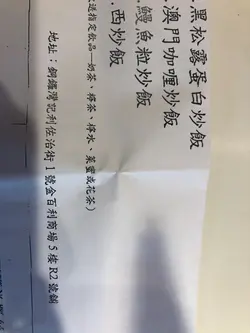 .黑松露蛋白炒飯
.澳門咖喱炒飯
.鰻魚粒炒飯
.西炒飯
送指定飲品—奶茶、檸茶、檸水、菜蜜或花茶)
地址：銅鑼灣記利佐治街1號金百利商場5樓R2號鋪